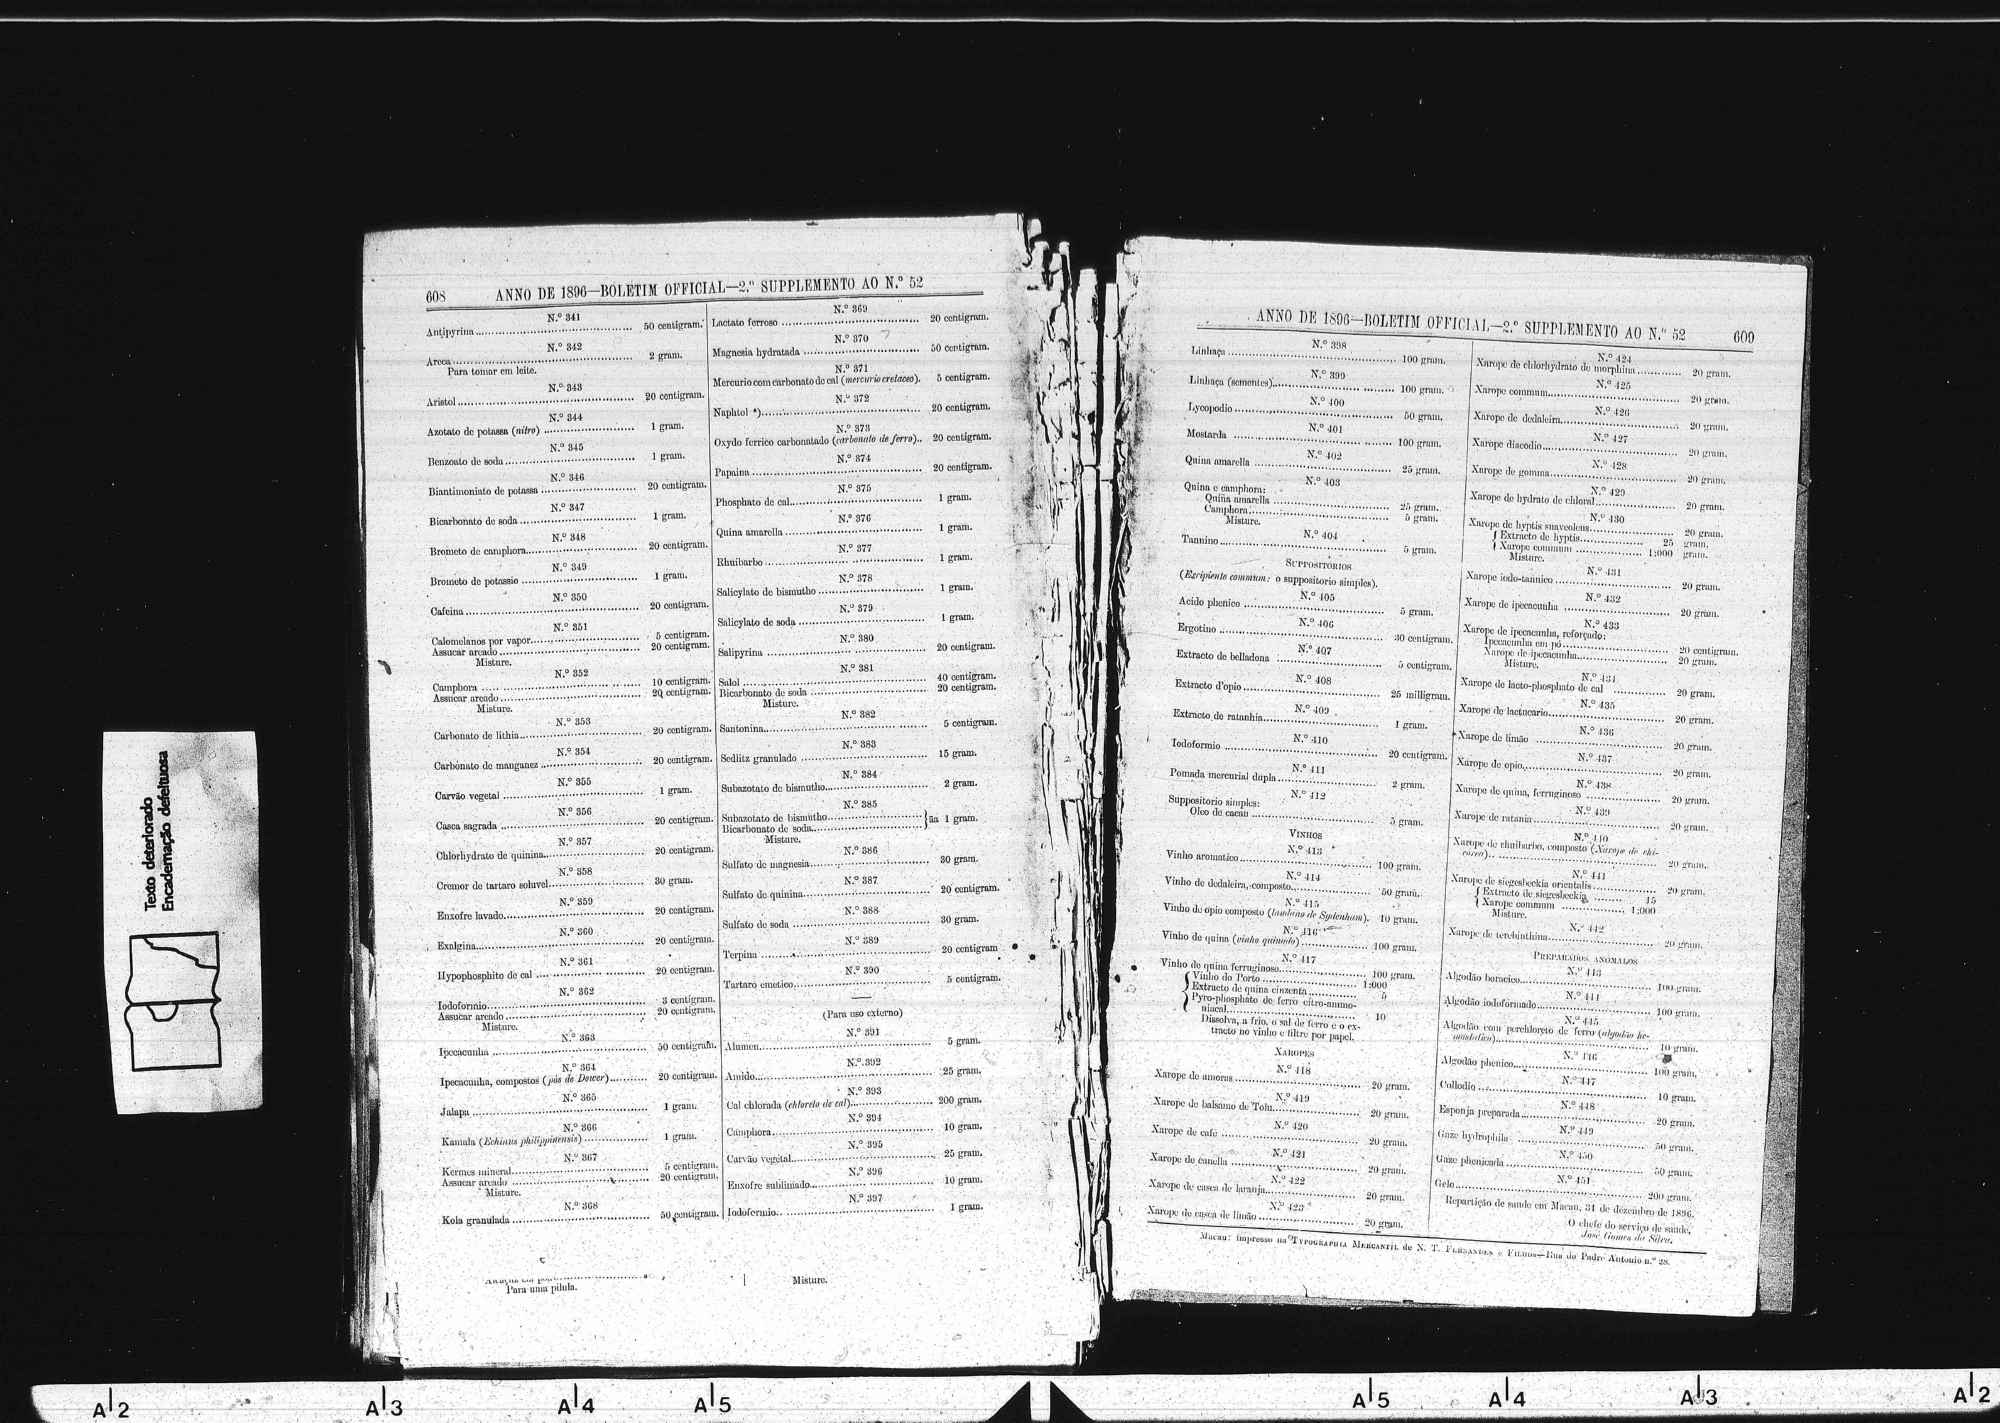 Texto deteriorado
Encadernação defeituosa
608 ANNO DE 1896—BOLETIM OFFICIAL—2.º SUPPLEMENTO AO N.º 52
N.º 341
Antipyrina 50 centigram.
N.º 342
Areca 2 gram.
Para tomar em leite.
N.º 343
Aristol 20 centigram.
N.º 344
Azotato de potassa (nitro) 1 gram.
N.º 345
Benzoato de soda 1 gram.
N.º 346
Biantimoniato de potassa 20 centigram.
N.º 347
Bicarbonato de soda 1 gram.
N.º 348
Brometo de camphora 20 centigram.
N.º 349
Brometo de potassio 1 gram.
N.º 350
Cafeina 20 centigram.
N.º 351
Calomelanos por vapor 5 centigram.
Assucar areado 20 centigram.
Misture.
N.º 352
Camphora 10 centigram.
Assucar areado 20 centigram.
Misture.
N.º 353
Carbonato de lithia 20 centigram.
N.º 354
Carbonato de manganez 20 centigram.
N.º 355
Carvão vegetal 1 gram.
N.º 356
Casca sagrada 20 centigram.
N.º 357
Chlorhydrato de quinina 20 centigram.
N.º 358
Cremor de tartaro soluvel 30 gram.
N.º 359
Enxofre lavado 20 centigram.
N.º 360
Exalgina 20 centigram.
N.º 361
Hypophosphito de cal 20 centigram.
N.º 362
Iodoformio 3 centigram.
Assucar areado 20 centigram.
Misture.
N.º 363
Ipecacunha 50 centigram.
N.º 364
Ipecacunha, compostos (pós de Dower) 20 centigram.
N.º 365
Jalapa 1 gram.
N.º 366
Kamala (Echinus philippinensis) 1 gram.
N.º 367
Kermes mineral 5 centigram.
Assucar areado 20 centigram.
Misture.
N.º 368
Kola granulada 50 centigram.
N.º 369
Lactato ferroso 20 centigram.
N.º 370
Magnesia hydratada 50 centigram.
N.º 371
Mercurio com carbonato de cal (mercurio cretaceo). 5 centigram.
N.º 372
Naphtol 20 centigram.
N.º 373
Oxydo ferrico carbonatado (carbonato de ferro) 20 centigram.
N.º 374
Papaina 20 centigram.
N.º 375
Phosphato de cal 1 gram.
N.º 376
Quina amarella 1 gram.
N.º 377
Rhuibarbo 1 gram.
N.º 378
Salicylato de bismutho 1 gram.
N.º 379
Salicylato de soda 1 gram.
N.º 380
Salipyrina 20 centigram.
N.º 381
Salol 40 centigram.
Bicarbonato de soda 20 centigram.
Misture.
N.º 382
Santonina 5 centigram.
N.º 383
Sedlitz granulado 15 gram.
N.º 384
Subazotato de bismutho 2 gram.
N.º 385
Subazotato de bismutho
Bicarbonato de soda } ãa 1 gram.
Misture.
N.º 386
Sulfato de magnesia 30 gram.
N.º 387
Sulfato de quinina 20 centigram.
N.º 388
Sulfato de soda 30 gram.
N.º 389
Terpina 20 centigram
N.º 390
Tartaro emetico 5 centigram.
(Para uso externo)
N.º 391
Alumen 5 gram.
N.º 392
Amido 25 gram.
N.º 393
Cal chlorada (chloreto de cal) 200 gram.
N.º 394
Camphora 10 gram.
N.º 395
Carvão vegetal 25 gram.
N.º 396
Enxofre sublimado 10 gram.
N.º 397
Iodoformio 1 gram.
Para uma pilula.
Misture.
ANNO DE 1896—BOLETIM OFFICIAL—2.º SUPPLEMENTO AO N.º 52 609
N.º 398
Linhaça 100 gram.
N.º 399
Linhaça (sementes) 100 gram.
N.º 400
Lycopodio 50 gram.
N.º 401
Mostarda 100 gram.
N.º 402
Quina amarella 25 gram.
N.º 403
Quina e camphora:
Quina amarella 25 gram.
Camphora 5 gram.
Misture.
N.º 404
Tannino 5 gram.
SUPPOSITORIOS
(Excipiente commum: o suppositorio simples).
N.º 405
Acido phenico 5 gram.
N.º 406
Ergotino 30 centigram.
N.º 407
Extracto de belladona 5 centigram.
N.º 408
Extracto d'opio 25 milligram.
N.º 409
Extracto de ratanhia 1 gram.
N.º 410
Iodoformio 20 centigram.
N.º 411
Pomada mercurial dupla 2 gram.
N.º 412
Suppositorio simples:
Oleo de cacau 5 gram.
VINHOS
N.º 413
Vinho aromatico 100 gram.
N.º 414
Vinho de dedaleira, composto 50 gram.
N.º 415
Vinho de opio composto (laudano de Sydenham). 10 gram.
N.º 416
Vinho de quina (vinho quinado) 100 gram.
N.º 417
Vinho de quina ferruginoso 100 gram.
Vinho do Porto 1:000
Extracto de quina cinzenta 5
Pyro-phosphato de ferro citro-ammo-
niacal 10
Dissolva, a frio, o sal de ferro e o ex-
tracto no vinho e filtre por papel.
XAROPES
N.º 418
Xarope de amoras 20 gram.
N.º 419
Xarope de balsamo de Tolu 20 gram.
N.º 420
Xarope de café 20 gram.
N.º 421
Xarope de canella 20 gram.
N.º 422
Xarope de casca de laranja 20 gram.
N.º 423
Xarope de casca de limão 20 gram.
N.º 424
Xarope de chlorhydrato de morphina 20 gram.
N.º 425
Xarope commum 20 gram.
N.º 426
Xarope de dedaleira 20 gram.
N.º 427
Xarope diacodio 20 gram.
N.º 428
Xarope de gomma 20 gram.
N.º 429
Xarope de hydrato de chloral 20 gram.
N.º 430
Xarope de hyptis suaveolens 20 gram.
Extracto de hyptis 25 gram.
Xarope commum 1:000 gram.
Misture.
N.º 431
Xarope iodo-tannico 20 gram.
N.º 432
Xarope de ipecacunha 20 gram.
N.º 433
Xarope de ipecacunha, reforçado:
Ipecacunha em pó 20 centigram.
Xarope de ipecacunha 20 gram.
Misture.
N.º 434
Xarope de lacto-phosphato de cal 20 gram.
N.º 435
Xarope de lactucario 20 gram.
N.º 436
Xarope de limão 20 gram.
N.º 437
Xarope de opio 20 gram.
N.º 438
Xarope de quina, ferruginoso 20 gram.
N.º 439
Xarope de ratania 20 gram.
N.º 440
Xarope de rhuibarbo, composto (Xarope de chi-
corea) 20 gram.
N.º 441
Xarope de siegesbeckia orientalis 20 gram.
Extracto de siegesbeckia 15
Xarope commum 1:000
Misture.
N.º 442
Xarope de terebinthina 20 gram.
PREPARADOS ANOMALOS
N.º 443
Algodão boracico 100 gram.
N.º 444
Algodão iodoformado 100 gram.
N.º 445
Algodão com perchloreto de ferro (algodão he-
mostatico) 10 gram.
N.º 446
Algodão phenico 100 gram.
N.º 447
Collodio 10 gram.
N.º 448
Esponja preparada 20 gram.
N.º 449
Gaze hydrophila 50 gram.
N.º 450
Gaze phenicada 50 gram.
N.º 451
Gelo 200 gram.
Repartição de saude em Macau, 31 de dezembro de 1896.
O chefe do serviço de saude,
José Gomes da Silva.
Macau: impresso na TYPOGRAPHIA MERCANTIL de N. T. FERNANDES e FILHOS—Rua do Padre Antonio n.º 28.
A 2 A 3 A 4 A 5 A 5 A 4 A 3 A 2